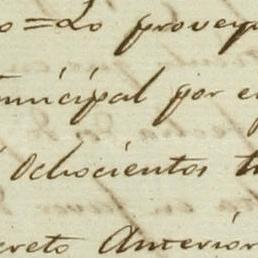 o=Lo proveyó
municipal por e
Ochocientos tr
creto Anterior